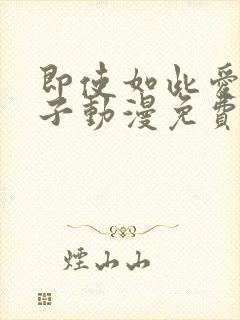 即使如此愛
子動漫免費
煙山山